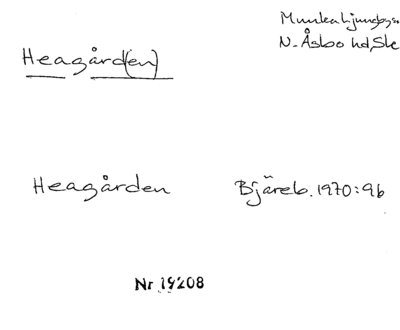 Munkaljungbys:n
N. Åsbo hd, Sk
Heagård(en)
Heagården Bjäreb. 1970:96
Nr 19208